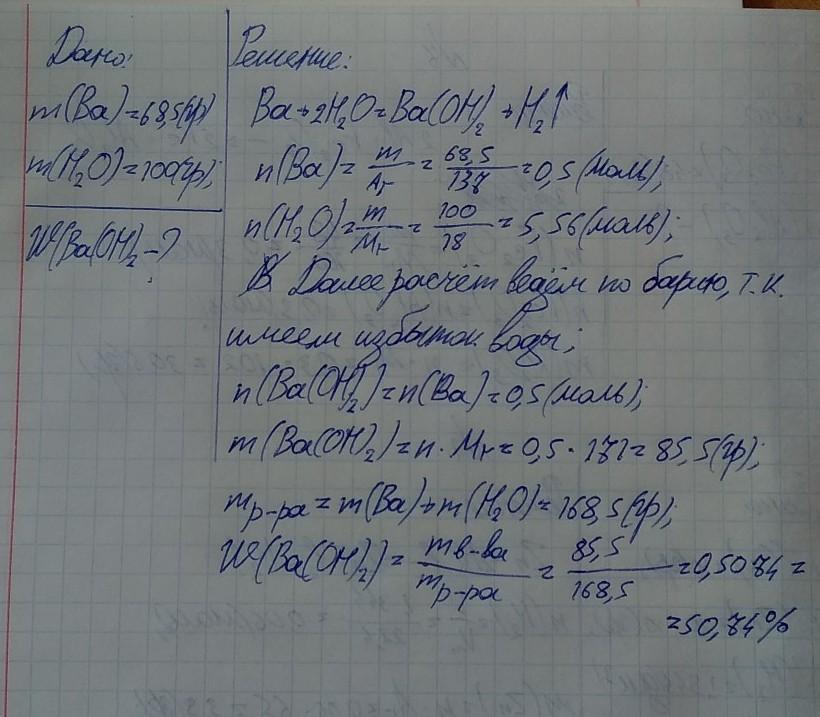 Дано:
m(Ba)=68,5(гр)
m(H₂O)=100(гр);
W(Ba(OH)₂-?
Решение:
Ba+2H₂O=Ba(OH)₂+H₂↑
n(Ba)= m/Ar = 68,5/137 =0,5(моль);
n(H₂O)= m/Mr = 100/18 = 5,56(моль);
Далее расчёт ведём по барию, т.к.
имеем избыток воды;
n(Ba(OH)₂)=n(Ba)=0,5(моль);
m(Ba(OH)₂)=n·Mr=0,5·171=85,5(гр);
mр-ра=m(Ba)+m(H₂O)=168,5(гр);
W(Ba(OH)₂)= mв-ва/mр-ра = 85,5/168,5 =0,5074=
=50,74%